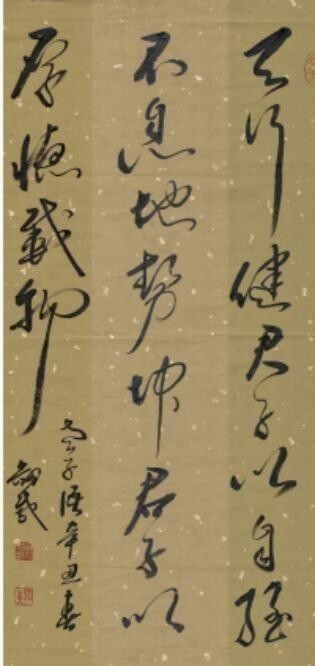 天行健君子以自强
不息地勢坤君子以
厚德載物
子語辛丑春